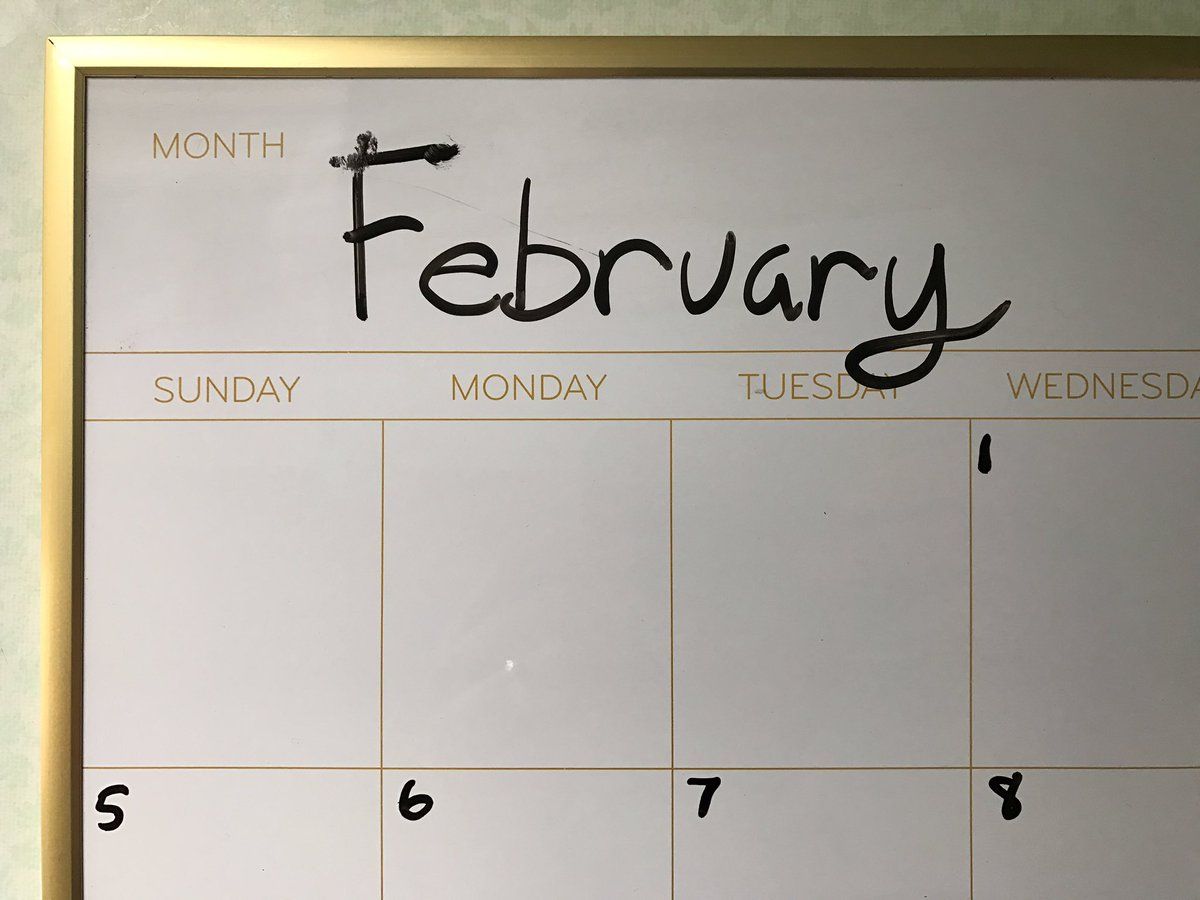 MONTH February
SUNDAY MONDAY TUESDAY WEDNESDA
1
5 6 7 8